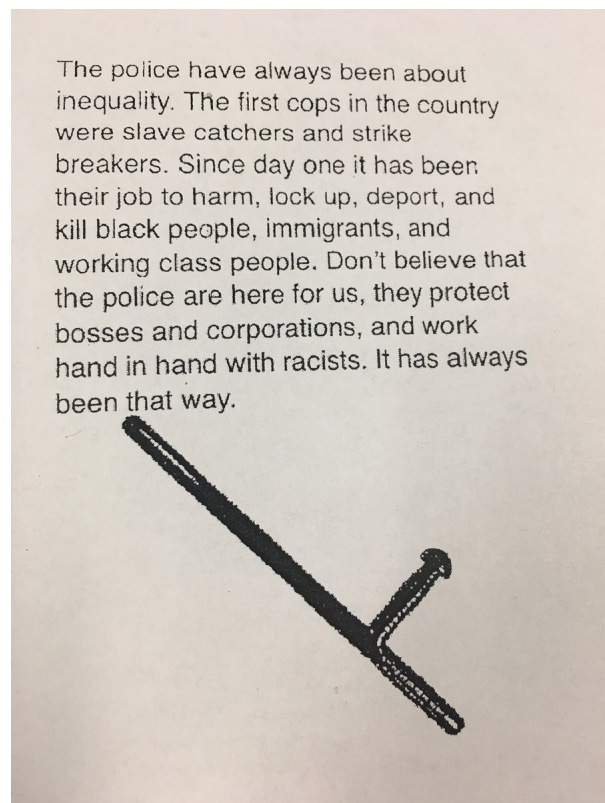 The police have always been about
inequality. The first cops in the country
were slave catchers and strike
breakers. Since day one it has been
their job to harm, lock up, deport, and
kill black people, immigrants, and
working class people. Don't believe that
the police are here for us, they protect
bosses and corporations, and work
hand in hand with racists. It has always
been that way.